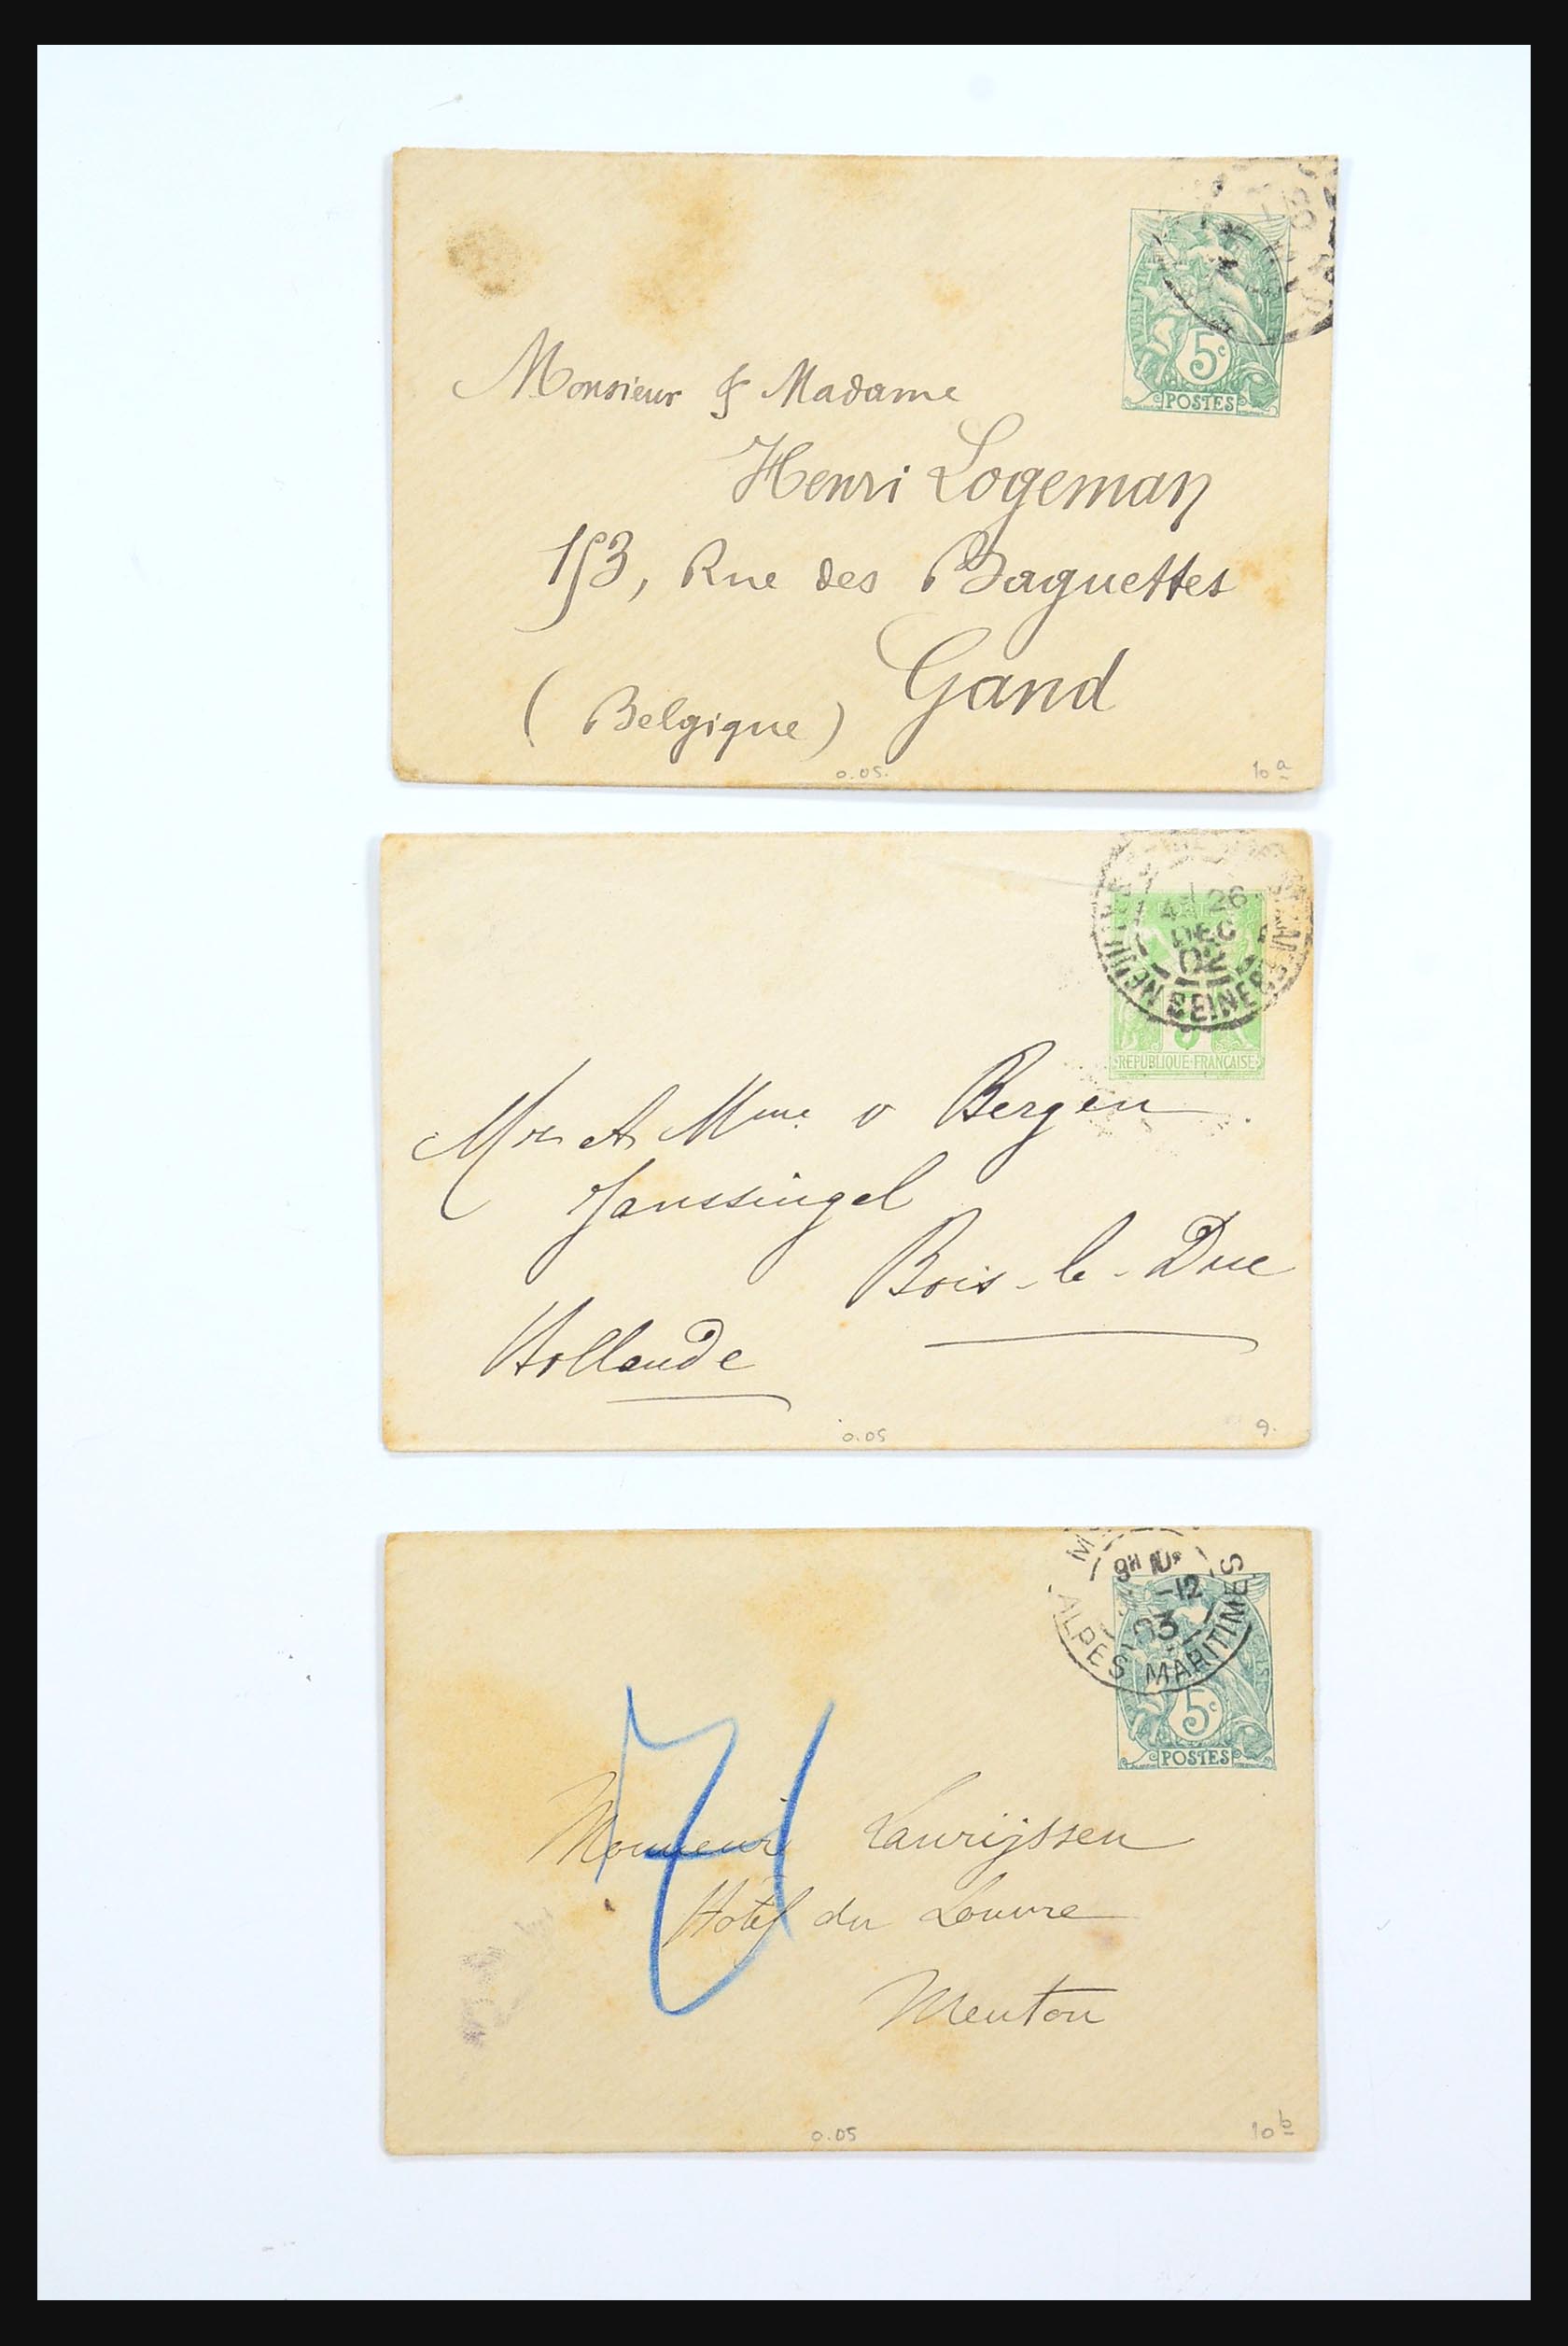 5c
POSTES
Monsieur & Madame
Henri Logeman
153, Rue des Baguettes
Gand
(Belgique)
0.05.
10 a
26
DEC
02
SEINE
REPUBLIQUE FRANCAISE
Mr et Mme v Bergen
Janssingel
Bois-le-Duc
Hollande
0.05
9.
-12
03
ALPES MARITIMES
5c
POSTES
Monsieur Laurijssen
Hotel du Louvre
Menton
0.05
10 b